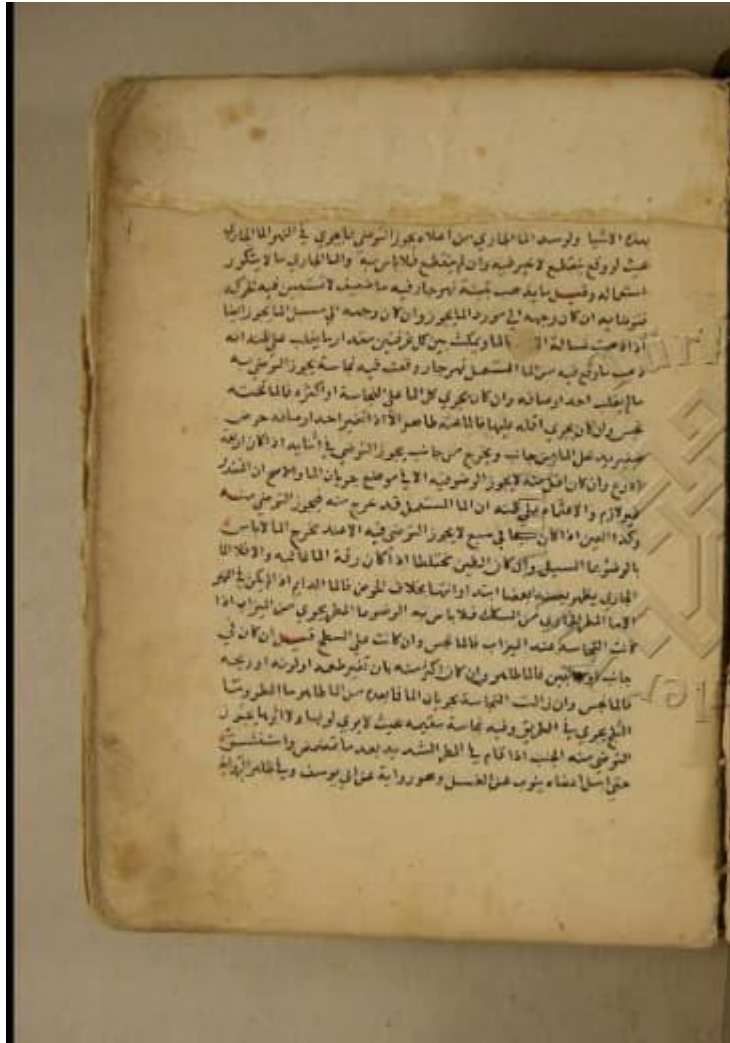 بهذه الاشيا ولو سد الما الجاري من اعلاه يجوز التوضي بما يجري في النهر الما الجاري
بحيث لو وقع ينقطع لا خير فيه وان لم ينقطع فلا باس به والما الجاري ما لا يتكرر
استعماله وقيل ما يذهب بتبنة نهر جار فيه ما ضعيف لا تستبين فيه الحركة
فتوضا به ان كان وجهه الي مورد الما يجوز وان كان وجهه الي مسيل الما يجوز ايضا
اذا ذهبت غسالة الما ويمكث بين كل غرفتين مقدار ما يغلب علي ظنه انه
ذهب ما وقع فيه من الما المستعمل نهر جار وقعت فيه نجاسة يجوز التوضي به
ما لم يغلب احد اوصافه وان كان يجري كل الما علي النجاسة او اكثره فالما تحته
نجس وان كان يجري اقله عليها فالما تحته طاهر الا اذا تغير احد اوصافه حوض
صغير يدخل الما من جانب ويخرج من جانب يجوز التوضي في اثنايه اذا كان اربعة
اذرع وان كان اقل منه لا يجوز الوضو فيه الا في موضع جريان الما والاصح ان التقدير
غير لازم والاعتماد علي ظنه ان الما المستعمل قد خرج منه فيجوز التوضي منه
وكذا العين اذا كان سبعا في سبع لا يجوز التوضي فيه الا عند مخرج الما لا باس
بالوضو بما السيل وان كان الطين مختلطا اذا كان رقة الما غالبة والا فلا الما
الجاري يطهر بعضه بعضا ابتدا وانتها بخلاف الحوض فالما الدايم اذا لم يكن في النهر
الا ما المطر الجاري من السكك فلا باس به الوضو بما المطر يجري من الميزاب اذا
كانت النجاسة عند الميزاب فالما نجس وان كانت علي السطح قيل ان كان في
جانب او جانبين فالما طاهر وان كان اكثر منه بان تغير طعمه او لونه او ريحه
فالما نجس وان زالت النجاسة بجريان الما فما بعده من الما طاهر ما المطر وما
الثلج يجري في الطريق وفيه نجاسة متغيبة بحيث لا يري لونها ولا اثرها يجوز
التوضي منه الجنب اذا قام في المطر الشديد بعد ما تمضمض واستنشق
حتي اغتسل اعضاه ينوب عن الغسل وهو رواية عن ابي يوسف وفي ظاهر الرواية